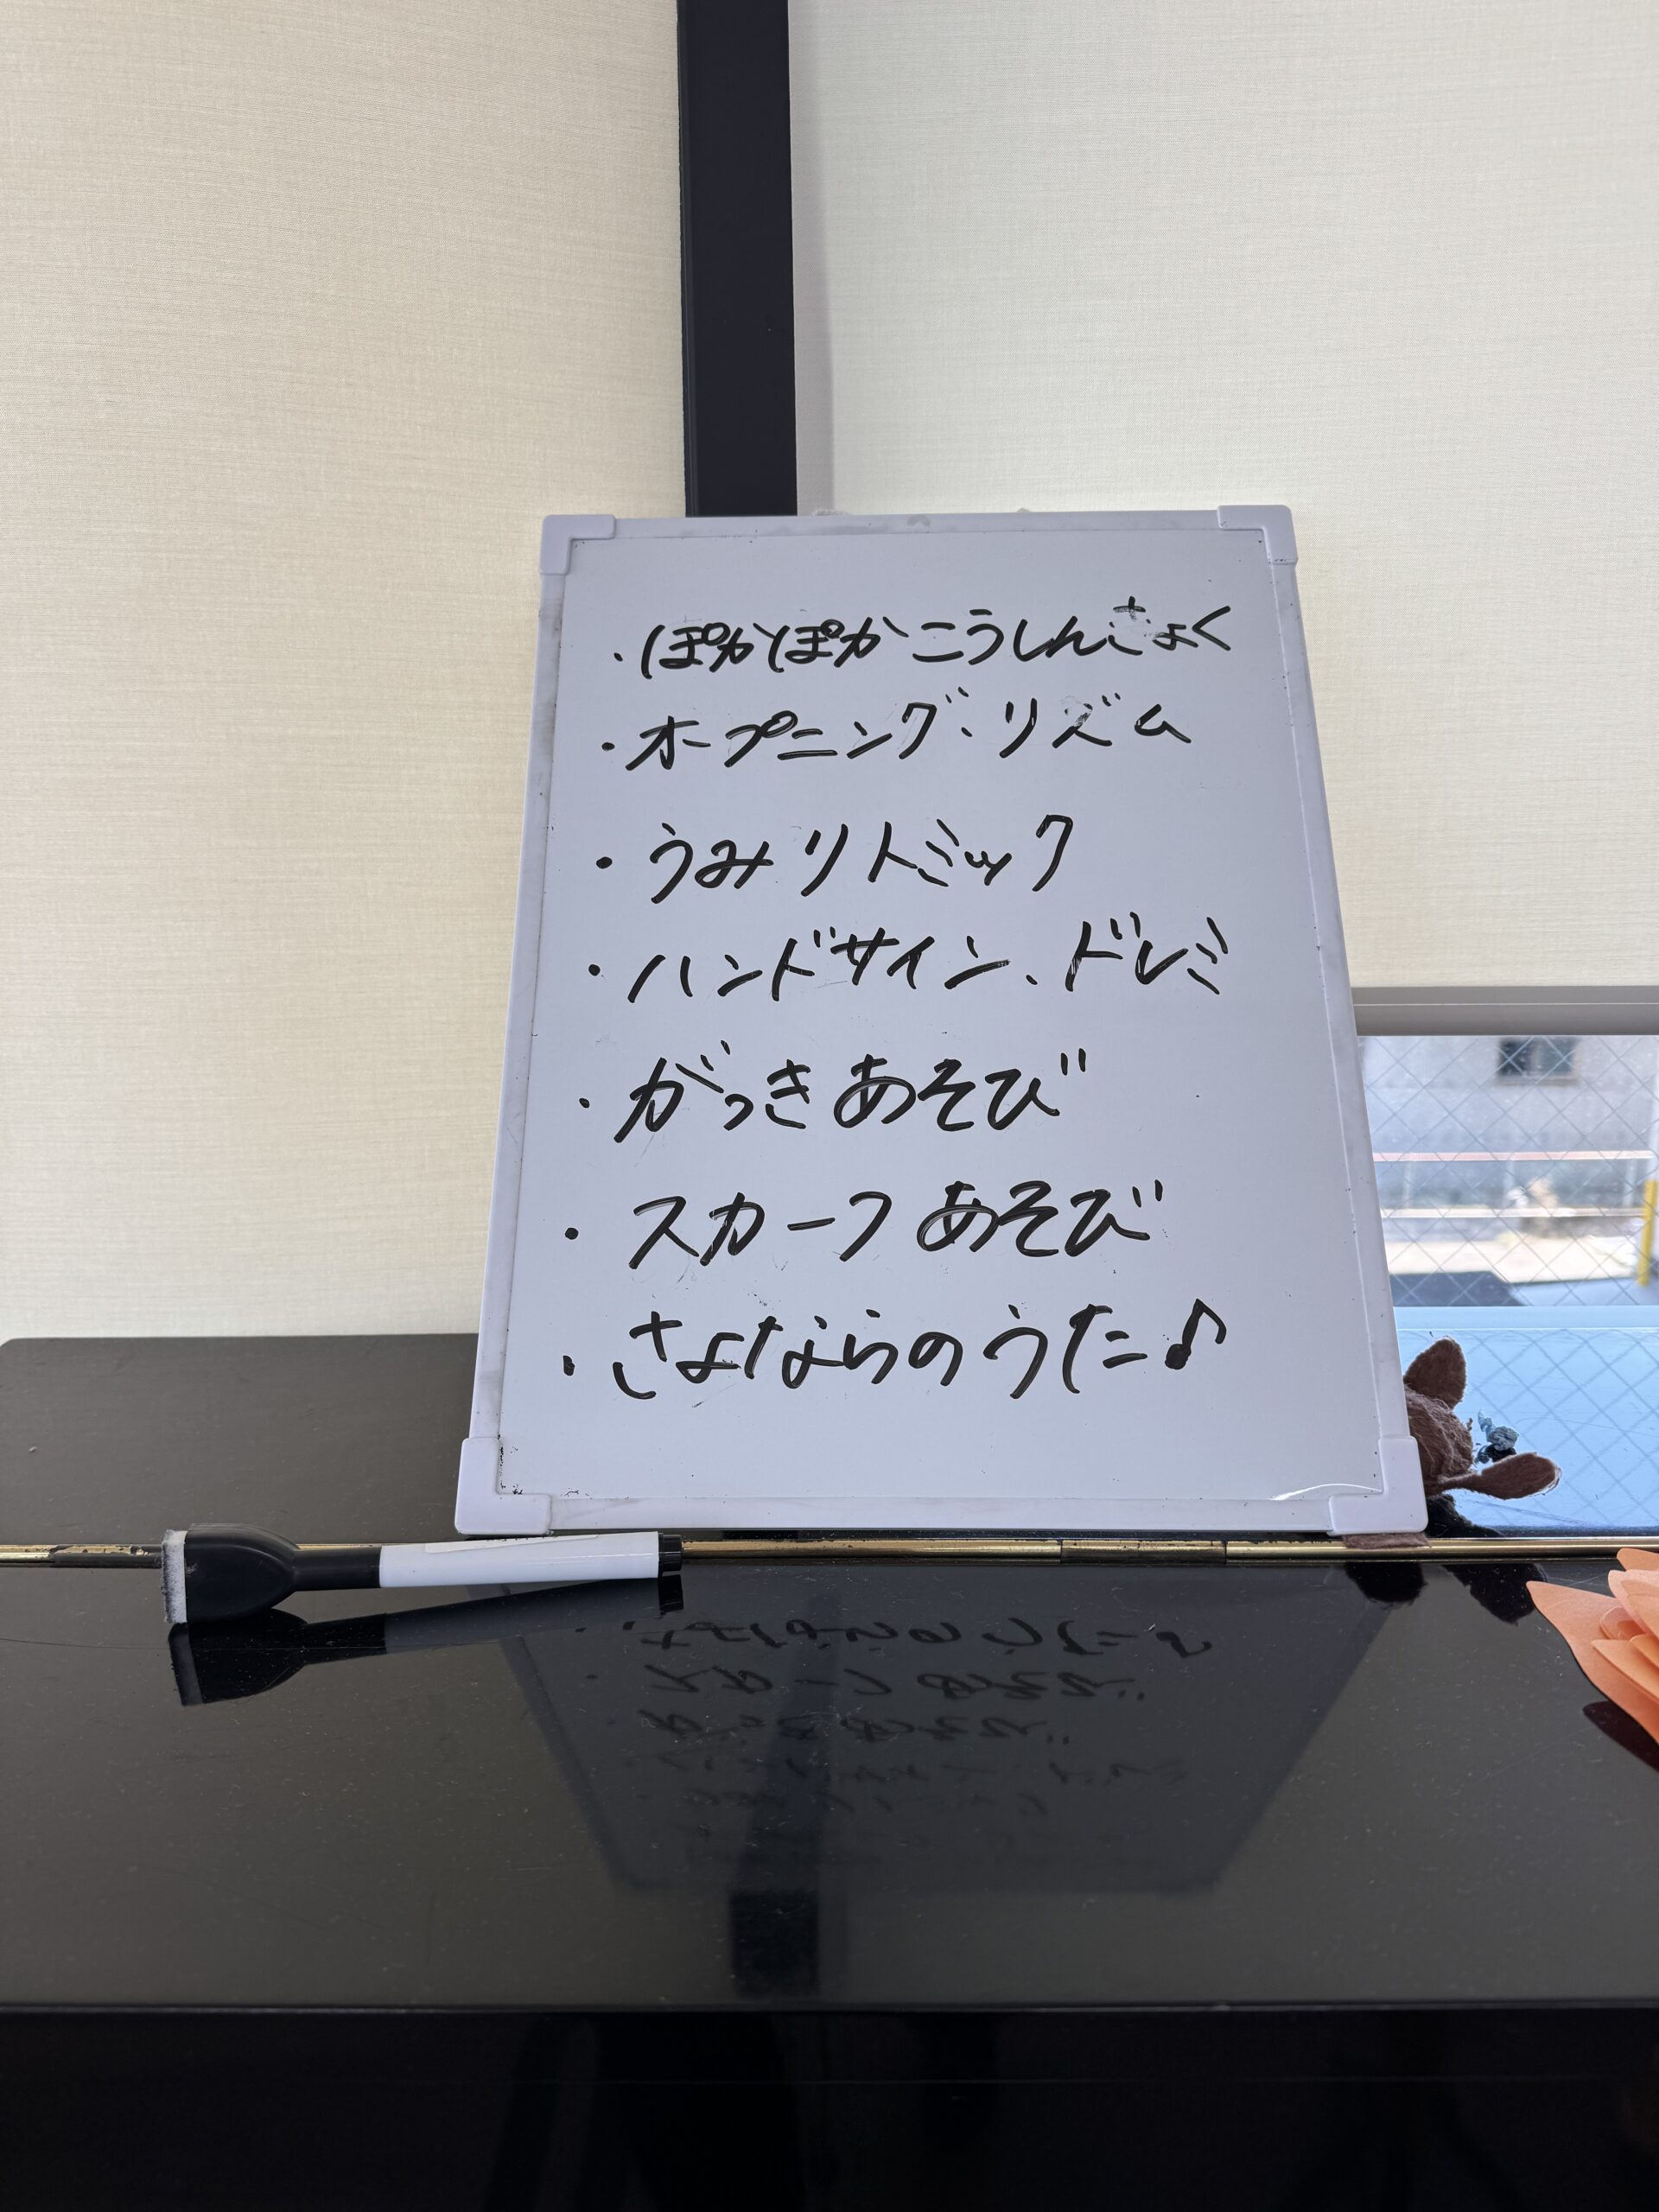 ・ぽかぽかこうしんきょく
・オープニング、リズム
・うみリトミック
・ハンドサイン、ドレミ
・がっきあそび
・スカーフあそび
・さよならのうた♪